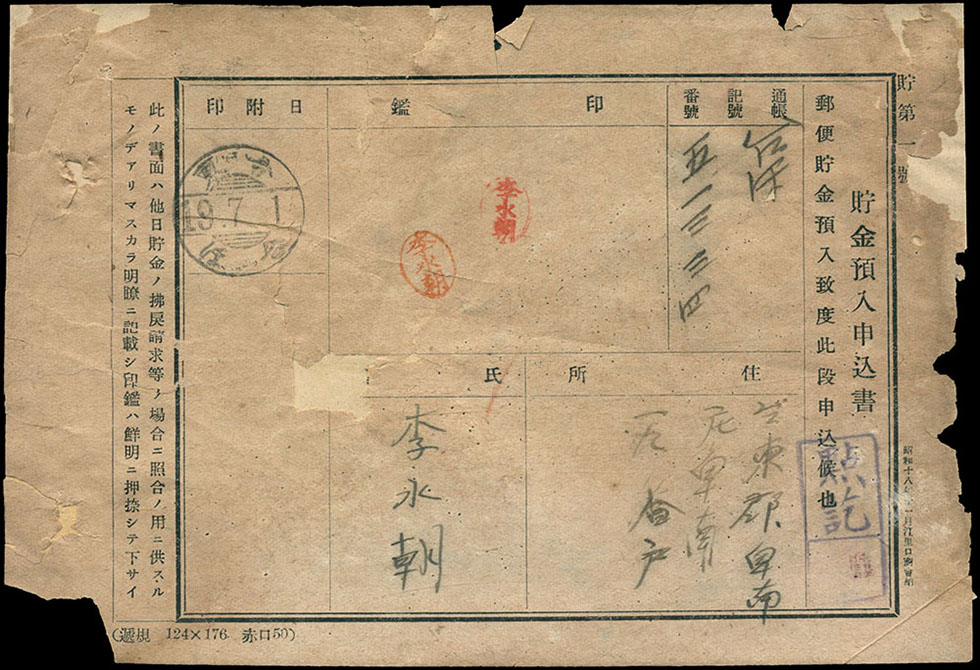 貯第一號
貯金預入申込書
郵便貯金預入致度此段申込候也
通帳
記號
番號
五一三三四
印鑑
李永朝
李永朝
日附印
19.7.1
住所
台東郡卑南
卑南
番戸
氏
李永朝
點訖
昭和十八年
此ノ書面ハ他日貯金ノ拂戻請求等ノ場合ニ照合ノ用ニ供スル
モノデアリマスカラ明瞭ニ記載シ印鑑ハ鮮明ニ押捺シテ下サイ
(遞規 124×176 赤口50)